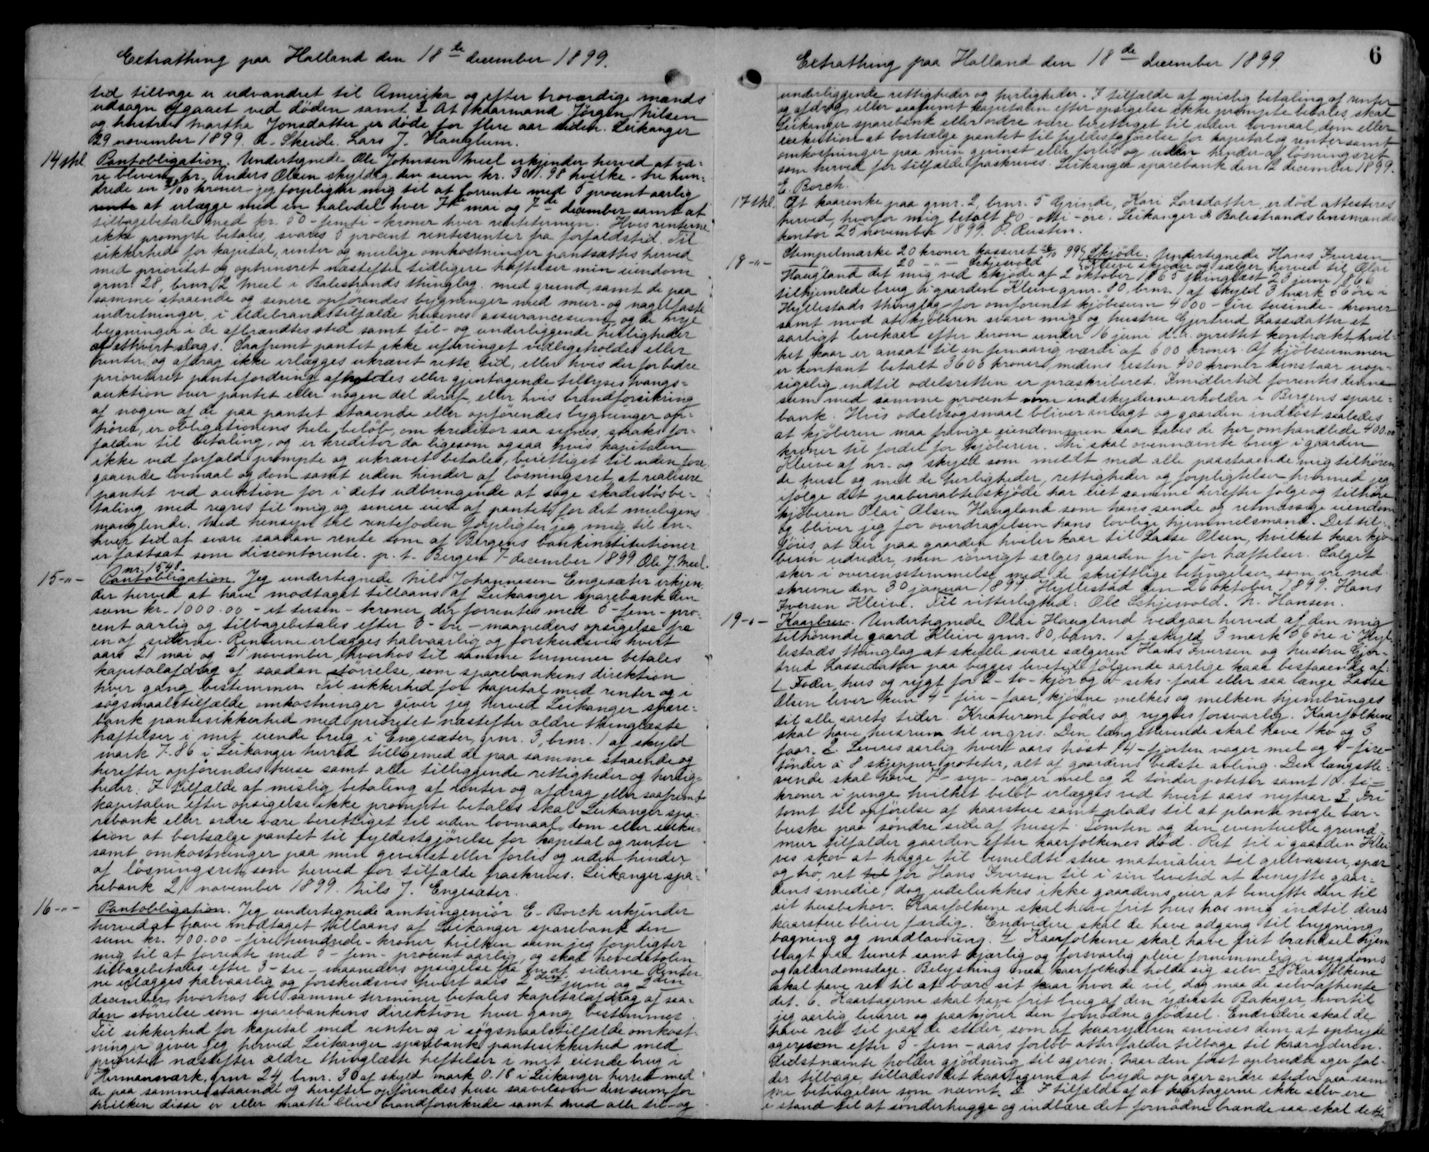 Extrathing paa Halland den 18de december 1899.
tid tilbage er udvandret til Amerika og efter troværdige mænds
udsagn afgaaet ved døden samt 2 At kaarmand Jørgen Nilsen
og hustru Martha Jonsdatter er døde for flere aar siden. Leikanger
29 november 1899. A. Skeide. Lars J. Hauglum.
14 skl. Pantobligation. Undertegnede Ole Johnsen Meel erkjender herved at væ-
re bleven hr. Anders Olsen skyldig den sum kr. 301.98 hvilke - tre hun-
drede en 98/100 kroner jeg forpligter mig til at forrente med 5 procent aarlig
rente at erlægge med en halvdel hver 7de mai og 7de december samt at
tilbagebetale med kr. 50 - femti - kroner hver rentetermin. Hvis renterne
ikke prompte betales, svares 6 procent rentesrenter fra forfaldstid. Til
sikkerhed for kapital, renter og mulige omkostninger pantsættes herved
med prioritet og optrinsret næstefter tidligere hæftelser min eiendom
grnr. 28, brnr. 2 Meel i Balestrands thinglag. med grund samt de paa
samme staaende og senere opførendes bygninger med mur- og naglfaste
indretninger, i ildebrandstilfælde husenes assurancesum og de nye
bygninger i de afbrændtes sted samt til- og underliggende herligheder
af ethvert slags. Saafremt pantet ikke uforringet vedligeholdes eller
renter og afdrag ikke erlægges ukrævet rette tid, eller hvis der for bedre
prioriteret pantefordring afholdes eller gjentagende tillyses tvangs-
auktion over pantet eller nogen del deraf, eller hvis brandforsikring
af nogen af de paa pantet staaende eller opførendes bygninger op-
hører, er obligationens hele beløb, om kreditor saa synes, straks for-
falden til betaling, og er kreditor da ligesom ogsaa hvis kapitalen
ikke ved forfald prompte og ukrævet betales, berettiget til uden fore
gaaende lovmaal og dom samt uden hinder af løsningsret, at realisere
pantet ved auktion for i dets udbringende at søge skadesløs be-
taling med regres til mig og senere eiere af pantet for det muligens
manglende. Med hensyn til rentefoden forpligter jeg mig til en-
hver tid at svare saadan rente som af Bergens bankinstitutioner
er fastsat som discontorente. p. t. Bergen 7 december 1899 Ole J. Meel.
nr. 1548.
15 -"- Pantobligation. Jeg undertegnede Nils Johannesen Engesæter erkjen
der herved at have modtaget tillaans af Leikanger sparebank den
sum kr. 1000.00 - et tusen - kroner, der forrentes med 5 - fem - pro-
cent aarlig og tilbagebetales efter 3 - tre - maaneders opsigelse fra
en af siderne. Renterne erlægges halvaarlig og forskudsvis hvert
aars 21 mai og 21 november, hvorhos til samme terminer betales
kapitalafdrag af saadan størrelse, som sparebankens direktion
hver gang bestemmer. Til sikkerhed for kapital med renter og i
søgsmaalstilfælde omkostninger giver jeg herved Leikanger spare-
bank pantesikkerhed med prioritet næstefter ældre thinglæste
hæftelser i mit eiende brug i Engesæter, grnr. 3, brnr. 1 af skyld
mark 7.86 i Leikanger herred tilligemed de paa samme staaende og
herefter opførendes huse samt alle tilliggende rettigheder og herlig-
heder. I tilfælde af mislig betaling af renter og afdrag eller saafremt
kapitalen efter opsigelse ikke prompte betales skal Leikanger spa-
rebank eller ordre være berettiget til uden lovmaal, dom eller exeku-
tion at bortsælge pantet til fyldestgjørelse for kapital og renter
samt omkostninger paa min gevinst eller forlis og uden hinder
af løsningsret som herved for tilfælde fraskrives. Leikanger spa-
rebank 21 november 1899. Nils J. Engesæter.
16 -"- Pantobligation. Jeg undertegnede amtsingeniør E. Borch erkjender
herved at have modtaget tillaans af Leikanger sparebank den
sum kr. 400.00 - firehundrede - kroner hvilken sum jeg forpligter
mig til at forrente med 5 - fem - procent aarlig, og skal hovedstolen
tilbagebetales efter 3 - tre - maaneders opsigelse fra en af siderne. Renter-
ne erlægges halvaarlig og forskudsvis hvert aars 2den juni og 2den
december, hvorhos til samme terminer betales kapitalafdrag af saa-
dan størrelse som sparebankens direktion hver gang bestemmes.
Til sikkerhed for kapital med renter og i søgsmaalstilfælde omkost
ninger giver jeg herved Leikanger sparebank pantesikkerhed med
prioritet næstefter ældre thinglæste heftelser i mit eiende brug i
Hermansværk, grnr 24 brnr. 30 af skyld mark 0.18 i Leikanger herred med
de paa samme staaende og herefter opførendes huse saavelsom den sum for
hvilken disse er eller maatte blive brandforsikrede samt med alle til- og
Extrathing paa Halland den 18de december 1899
6
underliggende rettigheder og herligheder. I tilfælde af mislig betaling af renter
og afdrag eller saafremt kapitalen efter opsigelse ikke prompte betales, skal
Leikanger sparebank eller ordre være berettiget til uden lovmaal, dom eller
exekution at bortsælge pantet til fyldestgjørelse for kapital og renter samt
omkostninger paa min gevinst eller forlis og uden hinder af løsningsret
som herved for tilfælde fraskrives. Leikanger sparebank den 2 december 1899.
E. Borch.
17 skl. At kaarenke paa grnr. 2, brnr. 5 Grinde, Kari Larsdatter, er død attesteres
herved, hvorfor mig betalt 80 - otti - øre. Leikanger & Balestrands lensmands
kontor 25 november 1899. P. Rusten.
18 -"- Stempelmærke 20 kroner kasseret 99. Skjøde. Undertegnede Hans Iversen
Kleive skjøder og sælger herved til Olai
Haugland det mig ved skjøde af 2 oktober 1865 thinglæst 20 juni 1866
tilhjemlede brug i gaarden Kleive grnr. 80, brnr. 1 af skyld 3 mark 56 øre i
Hyllestads thinglag for omforenet kjøbesum 4000 - fire tusinde - kroner
samt mod at kjøberen svarer mig og hustru Gjertrud Lassedatter et
aarligt livskaar efter derom under 16 juni d. a. oprettet kontrakt hvil-
ket kaar er ansat til en femaarig værdi af 600 kroner. Af kjøbesummen
er kontant betalt 3600 kroner, medens resten 400 kroner henstaar uop-
sigelig indtil odelsretten er præskriberet. Imidlertid forrentes denne
sum med samme procent som indskyderne erholder i Bergens spare-
bank. Hvis odelssøgsmaal bliver anlagt og gaarden indløst saaledes
at kjøberen maa fravige eiendommen saa tabes de her omhandlede 400.00
kroner til fordel for kjøberen. Thi skal ovennævnte brug i gaarden
Kleive af nr. og skyld som meldt med alle paastaaende mig tilhøren
de huse og med de herligheder, rettigheder og forpligtelser hvormed jeg
ifølge det paaberaabte skjøde har eiet samme herefter følge og tilhøre
kjøberen Olai Olsen Haugland som hans sande og retmæssige eiendom
og bliver jeg for overdragelsen hans lovlige hjemmelsmand. Det til-
føies, at der paa gaarden hviler kaar til Lasse Olsen, hvilket kaar kjø-
beren udreder, men iøvrigt sælges gaarden fri for hæftelser. Salget
sker i overensstemmelse med de skriftlige betingelser som er ned-
skrevne den 30 januar 1899. Hyllestad den 26 oktober 1899. Hans
Iversen Kleive. Til vitterlighed: Ole Schjesvold. N. Hansen.
19 -"- Kaarbrev. Undertegnede Olai Haugland vedgaar herved af den mig
tilhørende gaard Kleive grnr. 80, brnr. 1 af skyld 3 mark 56 øre i Hyl-
lestads thinglag at skulle svare sælgeren Hans Iversen og hustru Gjer-
trud Lassedatter paa begges levetid følgende aarlige kaar bestaaende af:
1. Foder, hus og røgt for 2 - to - kjør og 6 - seks - faar eller saa længe Lasse
Olsen lever kun 4 - fire - faar, kjørne melkes og melken hjembringes
til alle aarets tider. Kreaturene fødes og røgtes forsvarlig. Kaarfolkene
skal have husrum til en gris. Den længstlevende skal have 1 ko og 3
faar. 2. Leveres aarlig hvert aars høst 14 - fjorten vaager mel og 4 - fire -
tønder à 8 skjepper poteter, alt af gaardens bedste avling. Den længstle-
vende skal have 7 - syv - vaager mel og 2 tønder poteter samt 10 ti -
kroner i penge hvilket beløb erlægges ved hvert aars nytaar. 3. Fri
tomt til opførelse af kaarstue samt plads til at plante nogle bær-
buske paa søndre side af huset. Tomten og den eventuelle grund-
mur tilfalder gaarden efter kaarfolkenes død. Ret til i gaarden Klei-
ves skov at hugge til bemeldte stue materialier til gulvaaser, spær
og tro, ret for Hans Iversen til i sin levetid at benytte gaar-
dens smedie, dog udelukkes ikke gaardens eier at benytte den til
sit husbehov. Kaarfolkene skal have frit hus hos mig indtil deres
kaarstue bliver færdig. Endvidere skal de have adgang til brygning
bagning og madlavning. 4. Kaarfolkene skal have frit brændsel hjem
bragt paa tunet samt kjærlig og forsvarlig pleie fornemmelig i sygdoms
og alderdomsdage. Belysning maa kaarfolkene holde sig selv. 5. Kaarfolkene
skal have ret til at bære sit kaar hvor de vil, dog maa de selv afhente
det. 6. Kaartagerne skal have frit brug af den yderste Bakager, hvortil
jeg aarlig leverer og paakjører den fornødne gjødsel. Endvidere skal de
have ret til paa de steder, som af kaaryderen anvises dem, at opbryde
ager som efter 5 - fem - aars forløb atter falder tilbage til kaaryderen.
Sidstnævnte holder gjødning til ageren. Naar den først opbrudte ager fal-
der tilbage tillades det kaartagerne at bryde op ager andre steder paa sam-
me betingelser som nævnt. 7. I tilfælde af at kaartagerne ikke selv ere
i stand til at sønderhugge og indbære det fornødne brænde saa skal dette